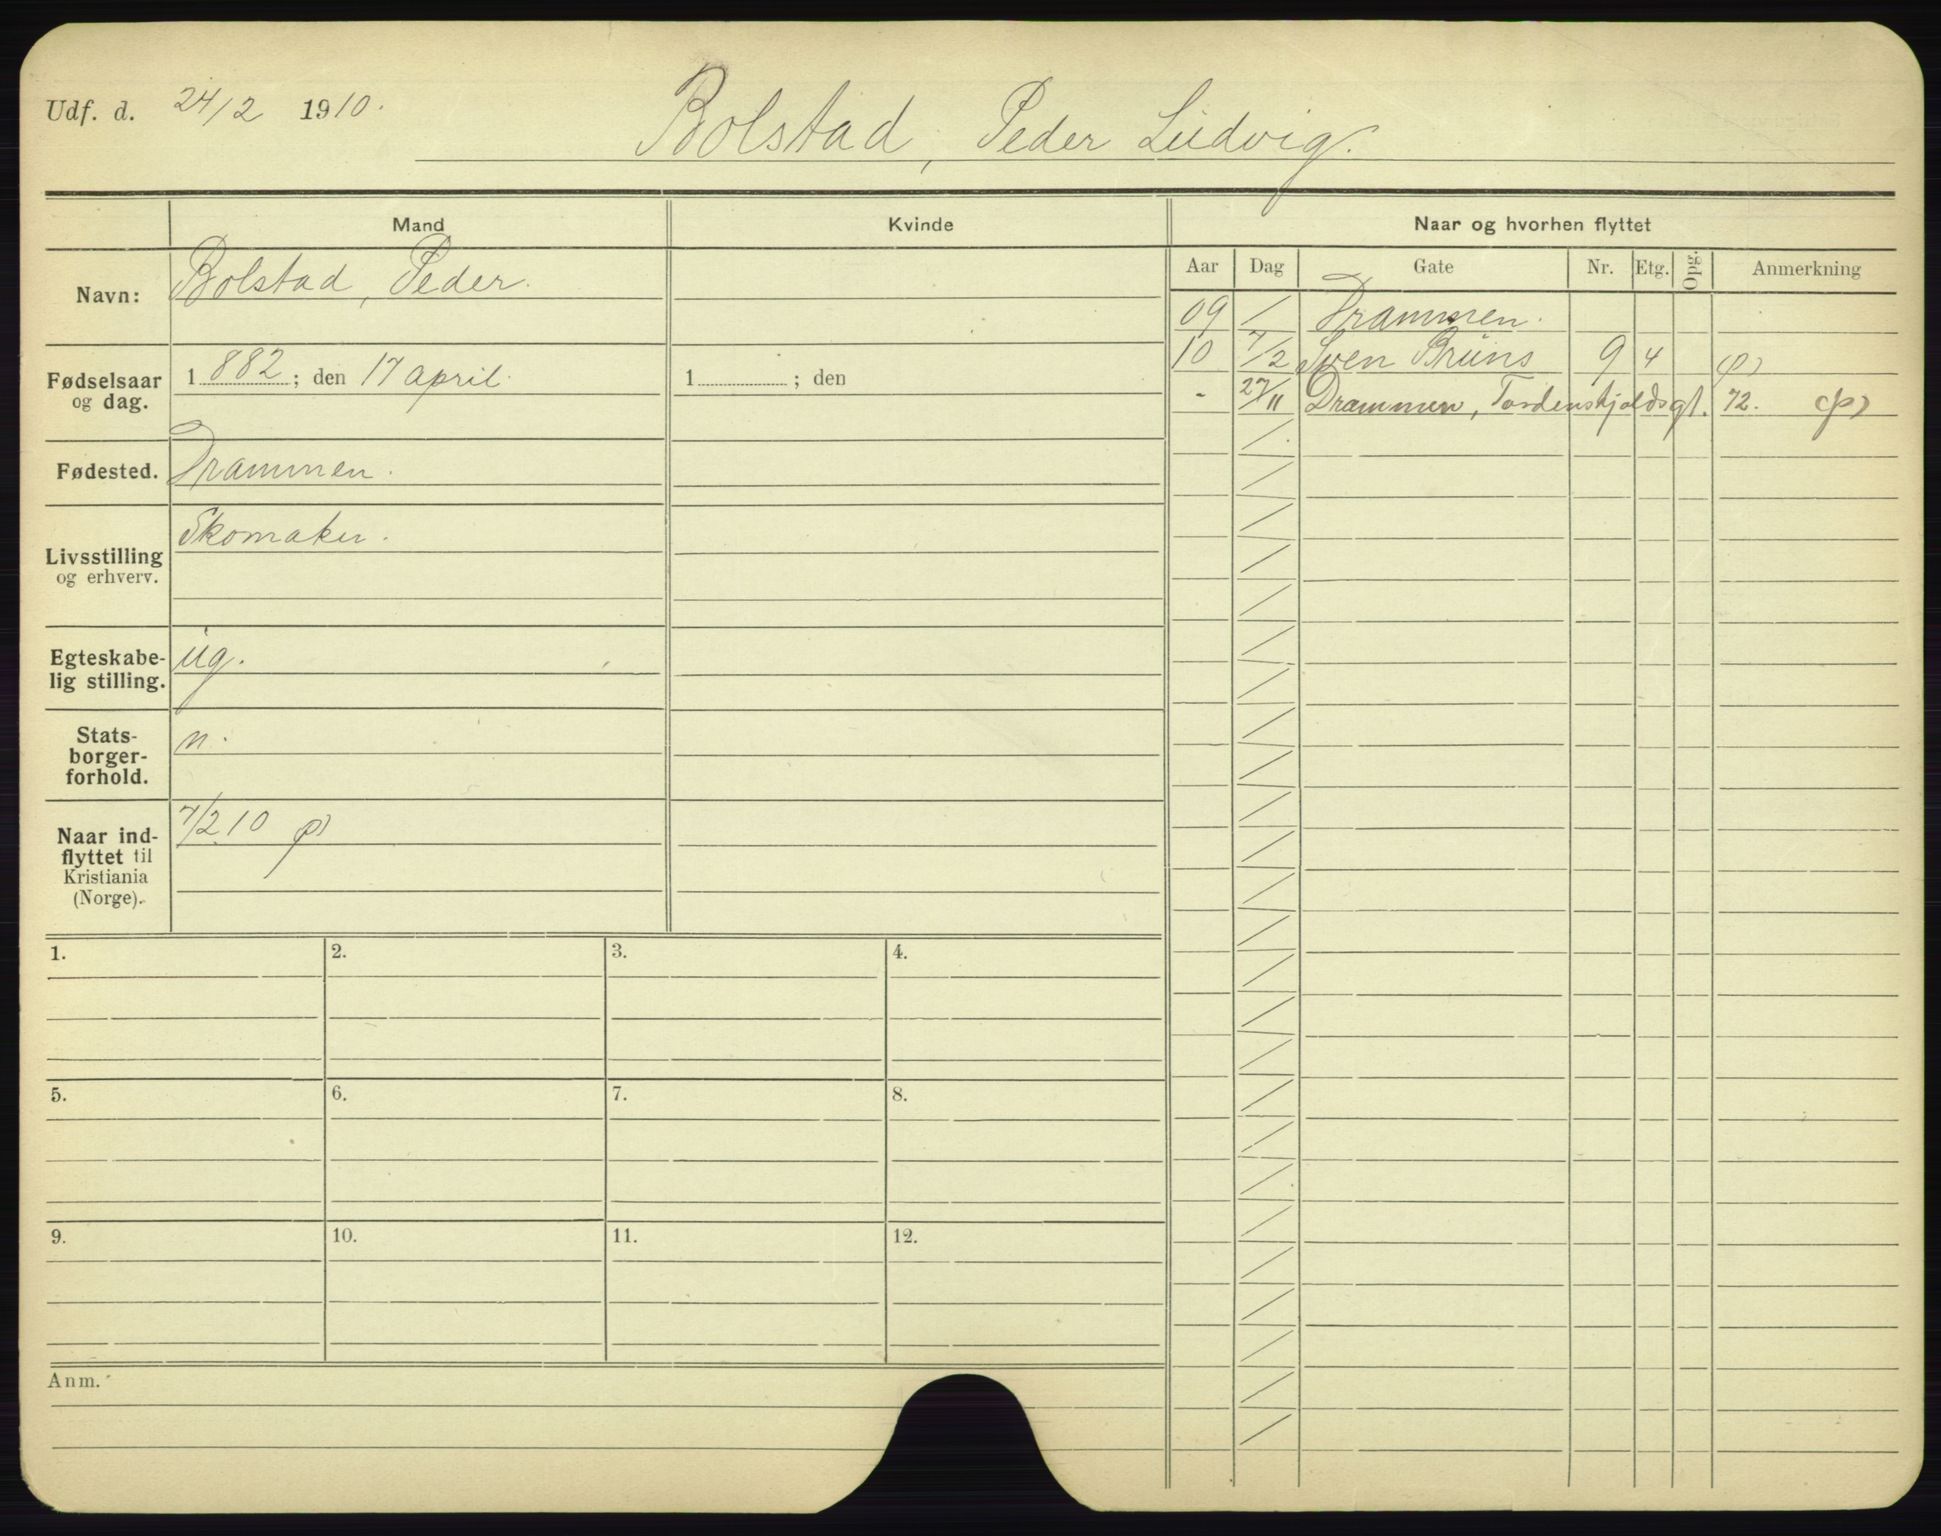 Udf. d. 24/2 1910.
Bolstad, Peder Ludvig.
Mand Kvinde Naar og hvorhen flyttet
Aar Dag Gate Nr. Etg. Opg. Anmerkning
Navn: Bolstad, Peder.
09 / Drammen.
10 7/2 Sven Bruns 9 4 (p)
- 27/11 Drammen, Tordenskjoldsgt. 72. (p)
Fødselsaar
og dag. 1882; den 17 april. 1 ; den
Fødested. Drammen.
Livsstilling
og erhverv. Skomaker.
Egteskabe-
lig stilling. ug.
Stats-
borger-
forhold. n.
Naar ind-
flyttet til
Kristiania
(Norge). 7/2 10 (p)
1. 2. 3. 4.
5. 6. 7. 8.
9. 10. 11. 12.
Anm.